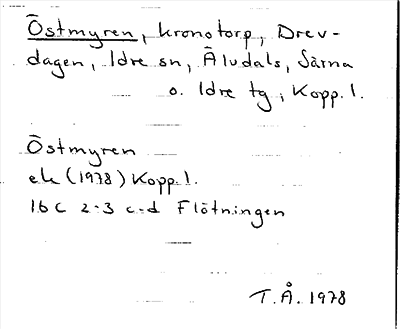 Östmyren, kronotorp, Drev-
dagen, Idre sn, Äludals, Särna
o. Idre tg, Kopp. l.
Östmyren
ek (1978) Kopp. l.
16C 2-3 c-d Flötningen
T.Å. 1978